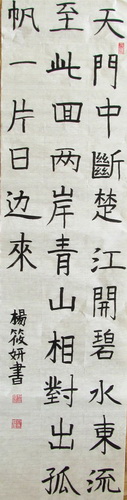 天門中斷楚江開碧水東流
至此回两岸青山相對出孤
帆一片日边來
楊筱妍書